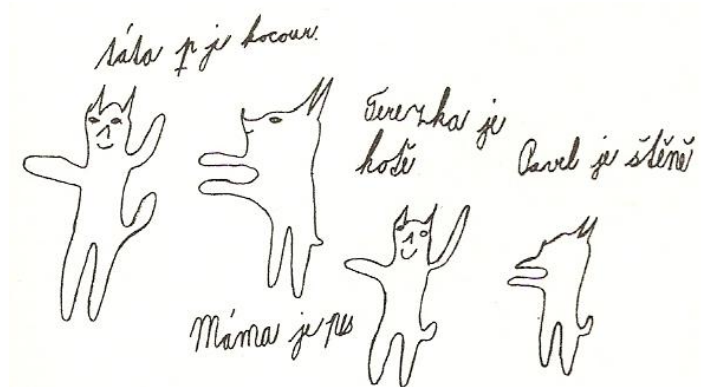 táta je kocour.
Terezka je
kotě
Pavel je štěně
Máma je pes